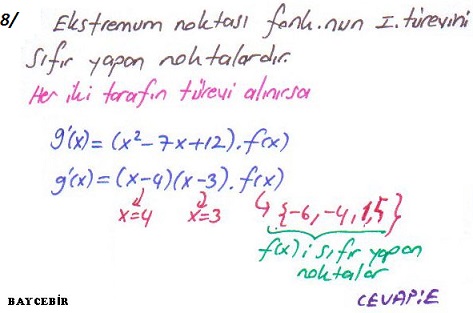 8/ Ekstremum noktası fonk.nun I. türevini
sıfır yapan noktalardır.
Her iki tarafın türevi alınırsa
g'(x)=(x²-7x+12).f(x)
g'(x)=(x-4)(x-3).f(x)
x=4 x=3 {-6,-4,1,5}
f(x)i sıfır yapan
noktalar
CEVAP:E
BAYCEBİR